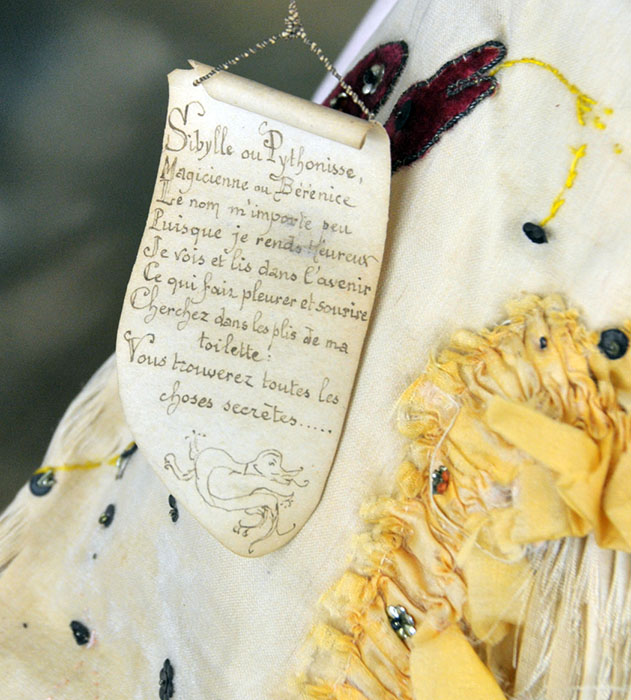 Sibylle ou Pythonisse,
Magicienne ou Bérénice
Le nom m'importe peu
Puisque je rends Heureux
Je vois et lis dans l'avenir
Ce qui fait pleurer et sourire
Cherchez dans les plis de ma
toilette :
Vous trouverez toutes les
choses secrètes.....